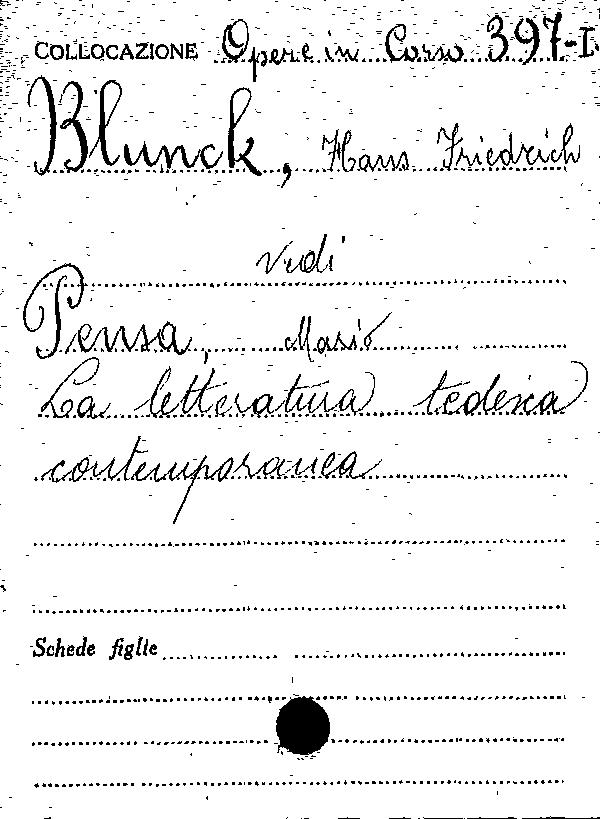 COLLOCAZIONE Opere in Corso 397-I.
Blunck, Hans Friedrich
vedi
Pensa, Mario
La letteratura tedesca
contemporanea
Schede figlie